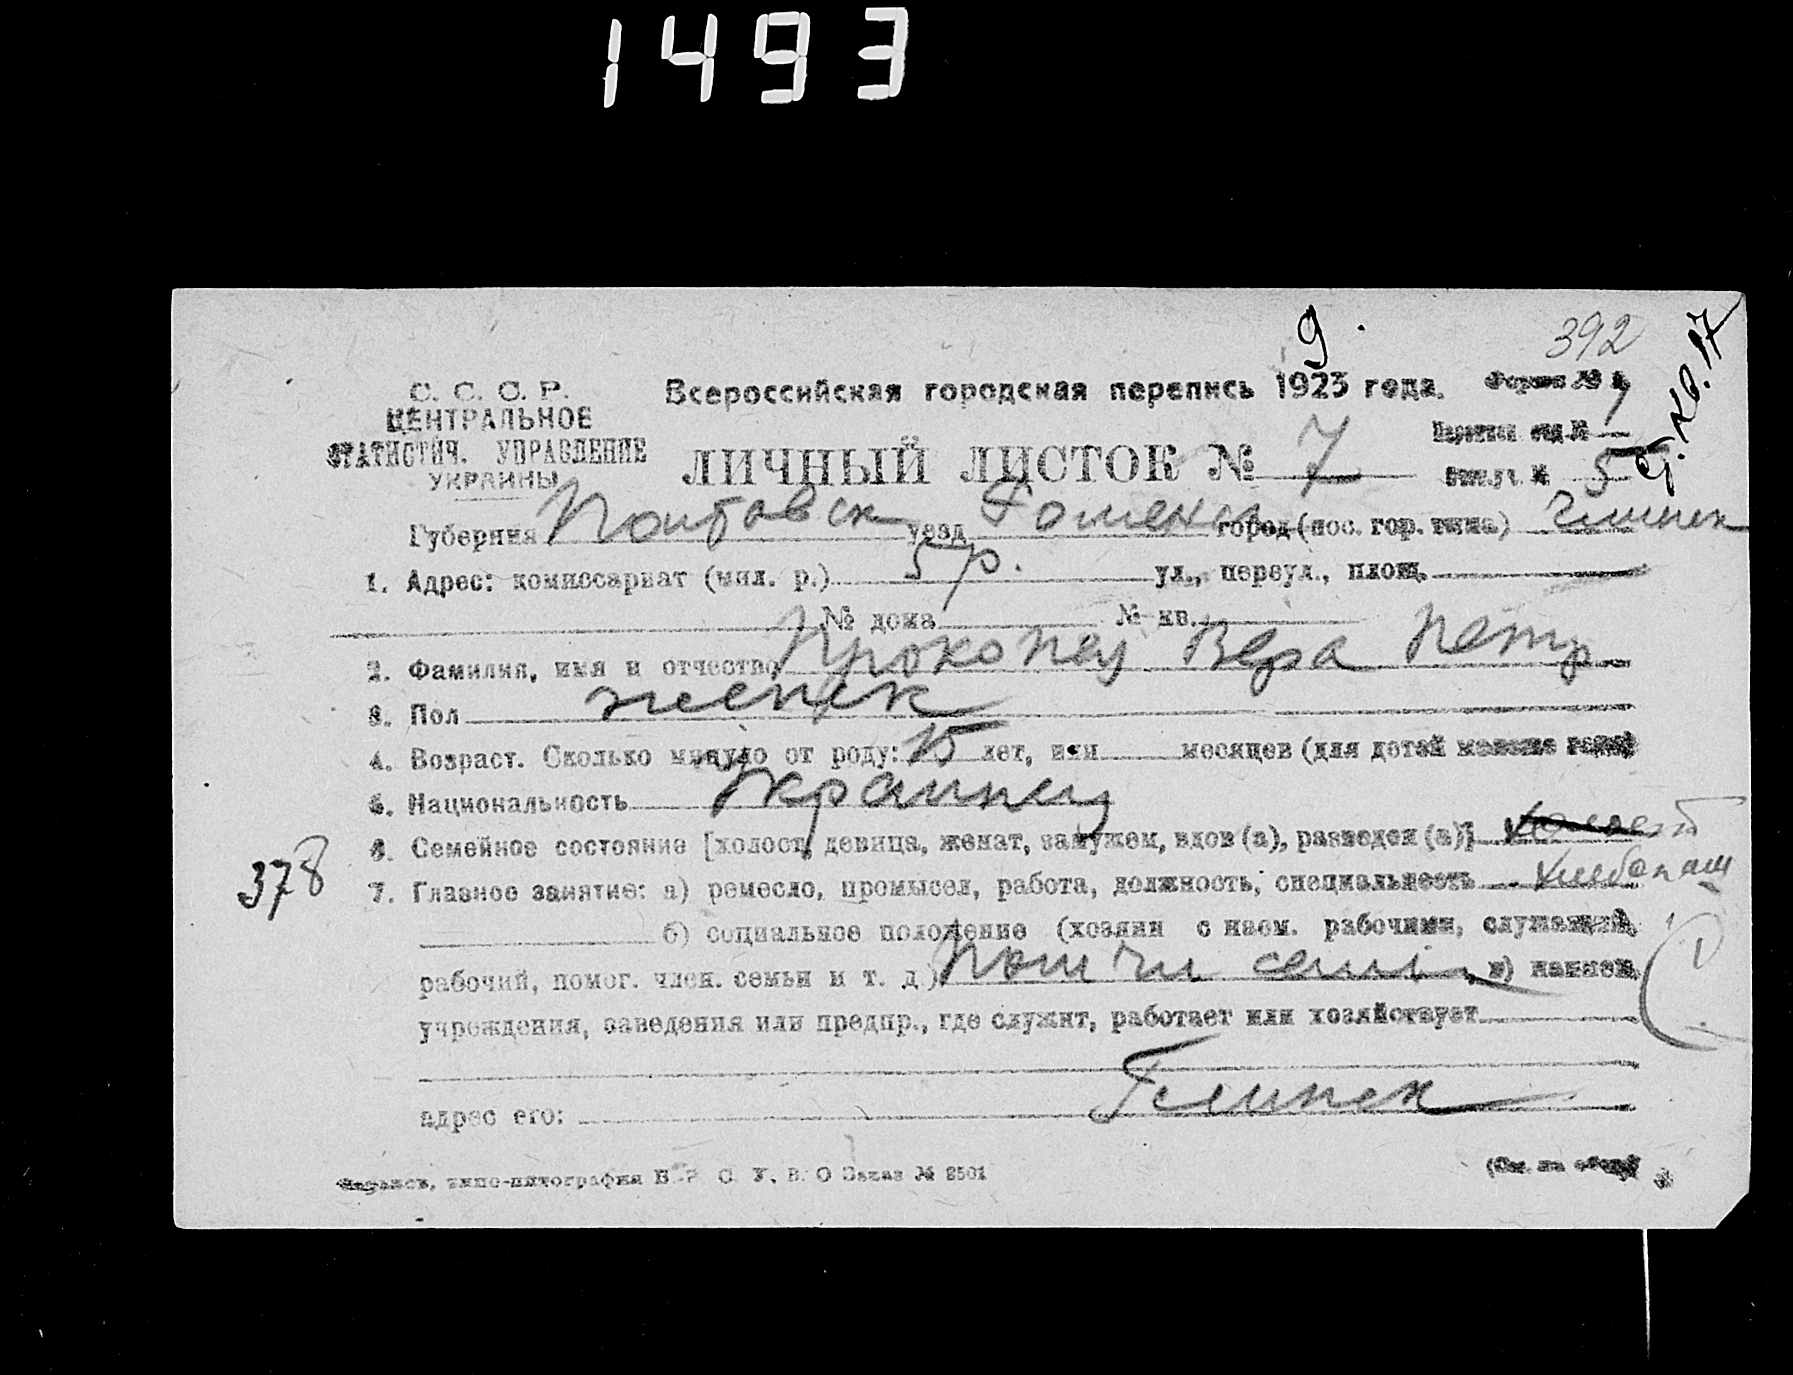 1493
9.
392
С. С. С. Р.
ЦЕНТРАЛЬНОЕ
СТАТИСТИЧ. УПРАВЛЕНИЕ
УКРАИНЫ
Всероссийская городская перепись 1923 года.
Форма №
ЛИЧНЫЙ ЛИСТОК № 7
5
Губерния Полтавск уезд Роменск город (пос. гор. типа) Глинск
1. Адрес: комиссариат (мил. р.) 5 р. ул., переул., площ.
№ дома № кв.
2. Фамилия, имя и отчество Прокопец Вера Петр
3. Пол женск
4. Возраст. Сколько минуло от роду: 15 лет, или месяцев (для детей
5. Национальность Украинец
6. Семейное состояние [холост, девица, женат, замужем, вдов (а), разведен (а)]
378
7. Главное занятие: а) ремесло, промысел, работа, должность, специальность хлебопаш
б) социальное положение (хозяин с наем. рабочими, служащий,
рабочий, помог. член. семьи и т. д.) пом чл семі, в) наимен.
1
учреждения, заведения или предпр., где служит, работает или хозяйствует
адрес его: Глинск
типо-литография Заказ № 2501
(См. на